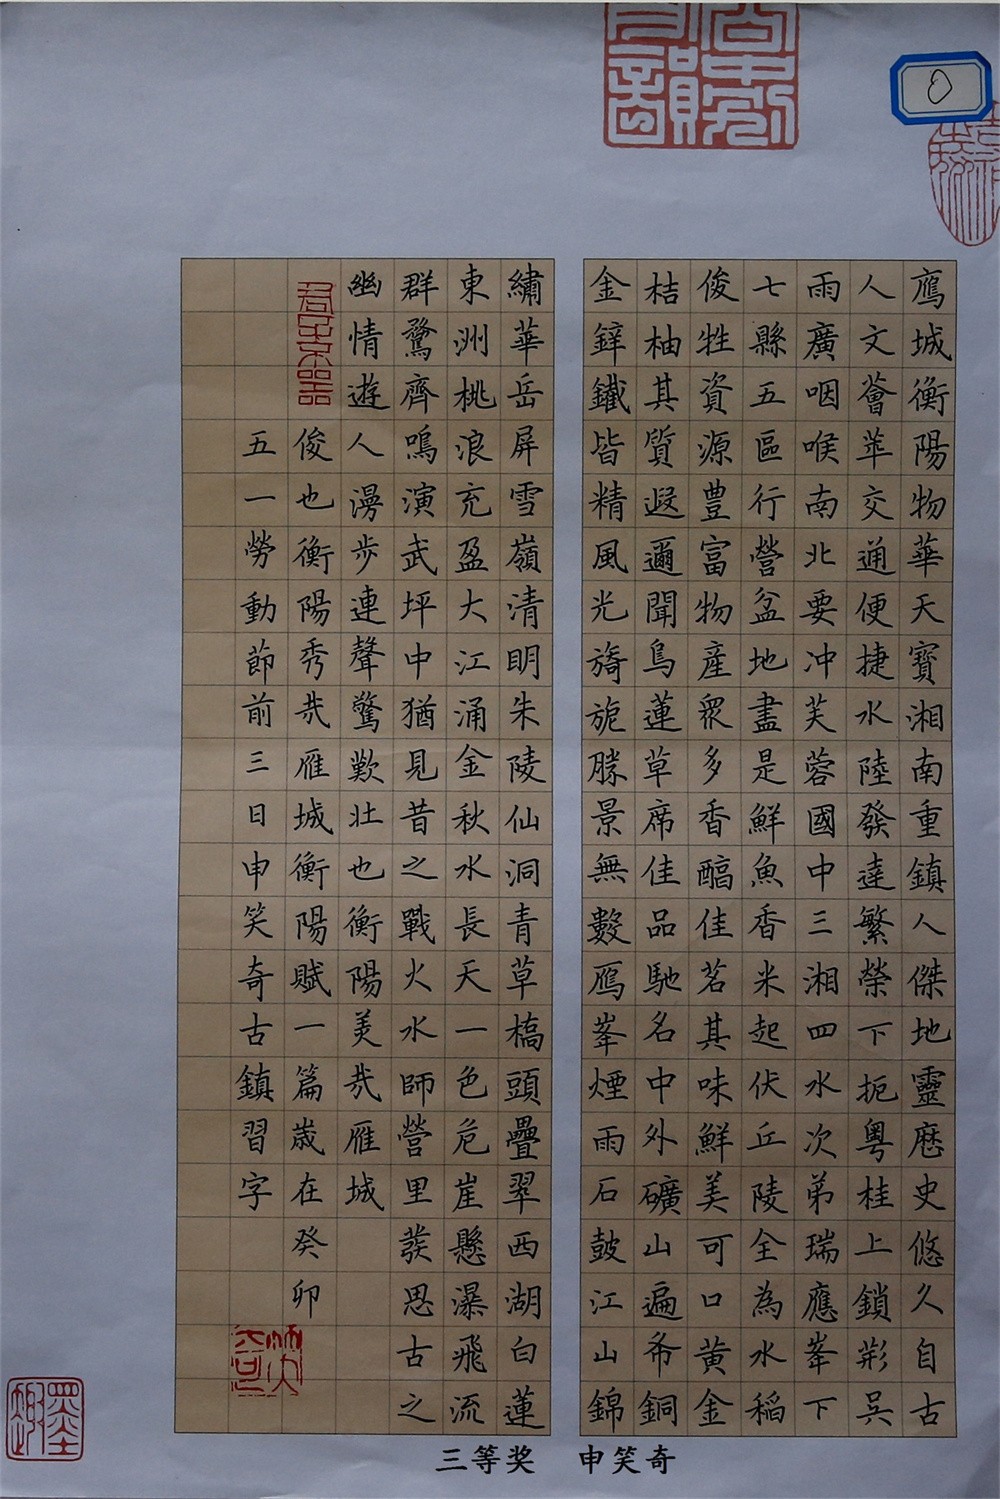 鴈城衡陽物華天寶湘南重鎮人傑地靈歷史悠久自古
人文薈萃交通便捷水陸發達繁榮下扼粵桂上鎖荊吳
雨廣咽喉南北要冲芙蓉國中三湘四水次弟瑞應峯下
七縣五區行營盆地盡是鮮魚香米起伏丘陵全為水稻
俊牲資源豊富物產衆多香佳茗其味鮮美可口黃金
桔柚其質遐邇聞烏蓮草席佳品馳名中外礦山遍布銅
金鋅鐵皆精風光旖旎勝景無數鴈峯煙雨石鼓江山錦
繡華岳屏雪嶺清明朱陵仙洞青草橋頭疊翠西湖白蓮
東洲桃浪充盈大江涌金秋水長天一色危崖懸瀑飛流
群鶩齊鳴演武坪中猶見昔之戰火水師營里發思古之
幽情遊人漫步連聲驚歎壯也衡陽美哉雁城
俊也衡陽秀哉雁城衡陽賦一篇歲在癸卯
五一勞動節前三日申笑奇古鎮習字
笑奇
墨趣
三等奖 申笑奇